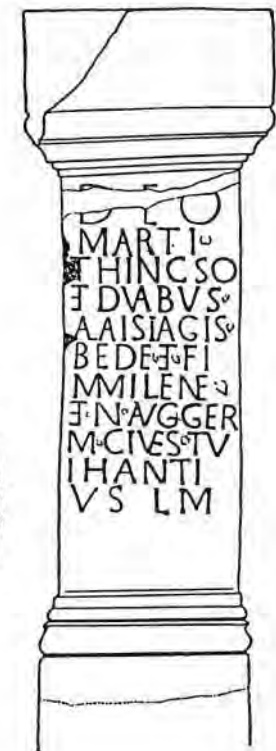 DEO
MARTI
THINCSO
ET DVABVS
AAISIAGIS
BEDE ET FI
MMILENE
ET N AVGGER
M CIVES TV
IHANTI
VS LM